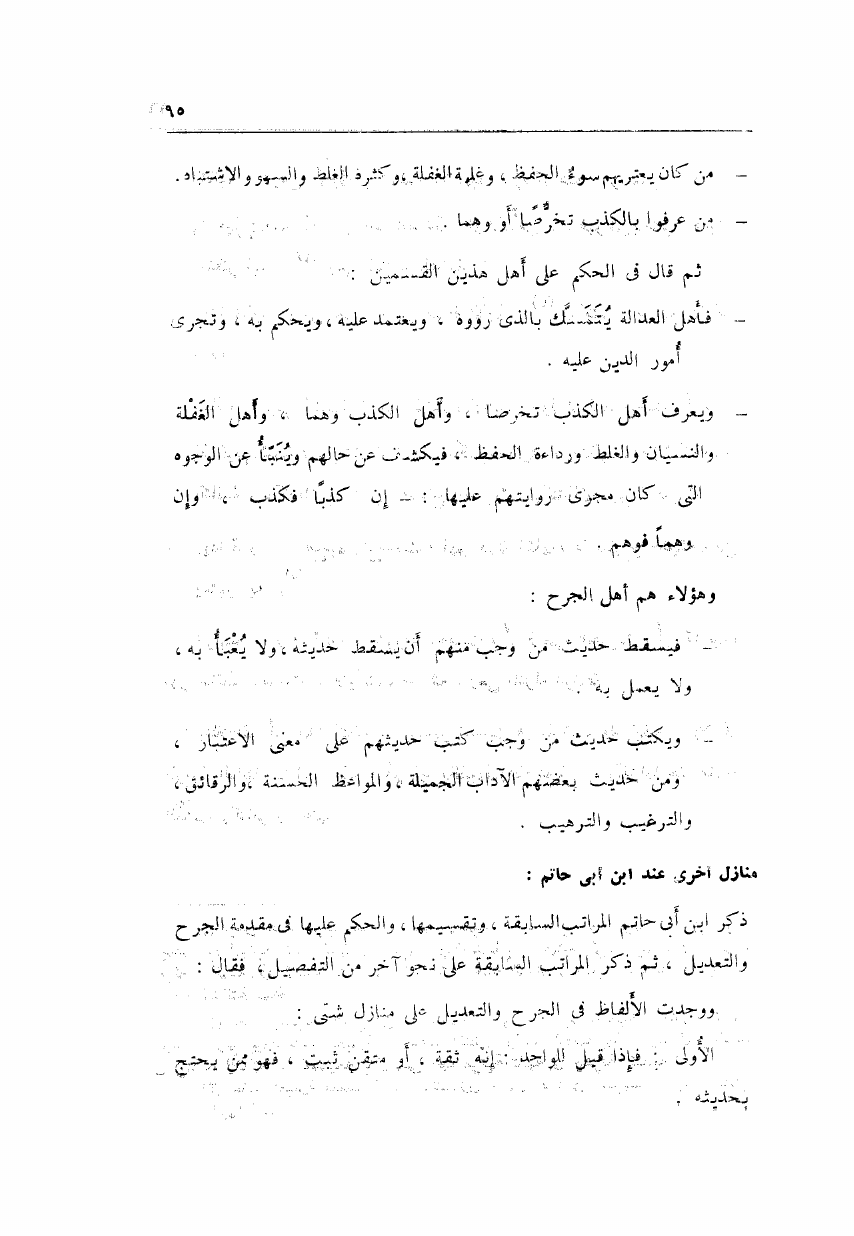 ٩٥
– من كان يعتريهم سوءُ الحفظ ، وغلبة الغفلة ، وكثرة الغلط والسهو والاشتباه .
– من عرفوا بالكذب تخرُّصًا أو وهما .
ثم قال فى الحكم على أهل هذين القسمين :
– فأهل العدالة يُتَمَسَّك بالذى رووه ، ويعتمد عليه ، ويحكم به ، وتجرى
أُمور الدين عليه .
– ويعرف أهل الكذب تخرصا ، وأهل الكذب وهما ، وأهل الغَفْلة
والنسيان والغلط ورداءة الحفظ ، فيكشف عن حالهم ويُنَبَّأُ عن الوجوه
التى كان مجرى روايتهم عليها : – إن كذبًا فكذب ، وإن
وهماً فوهم .
وهؤلاء هم أهل الجرح :
– فيسقط حديث من وجب منهم أن يسقط حديثه ، ولا يُعْبَأُ به ،
ولا يعمل به .
– ويكتب حديث من وجب كتب حديثهم على معنى الاعتبار ،
ومن حديث بعضهم الآداب الجميلة ، والمواعظ الحسنة ، والرقائق ،
والترغيب والترهيب .
منازل أخرى عند ابن أبى حاتم :
ذكر ابن أبى حاتم المراتب السابقة ، وتقسيمها ، والحكم عليها فى مقدمة الجرح
والتعديل ، ثم ذكر المراتب السابقة على نحو آخر من التفصيل ، فقال :
ووجدت الألفاظ فى الجرح والتعديل على منازل شتى :
الأُولى : فإذا قيل للواحد : إنه ثقة ، أو متقن ثبت ، فهو ممن يحتج
بحديثه .